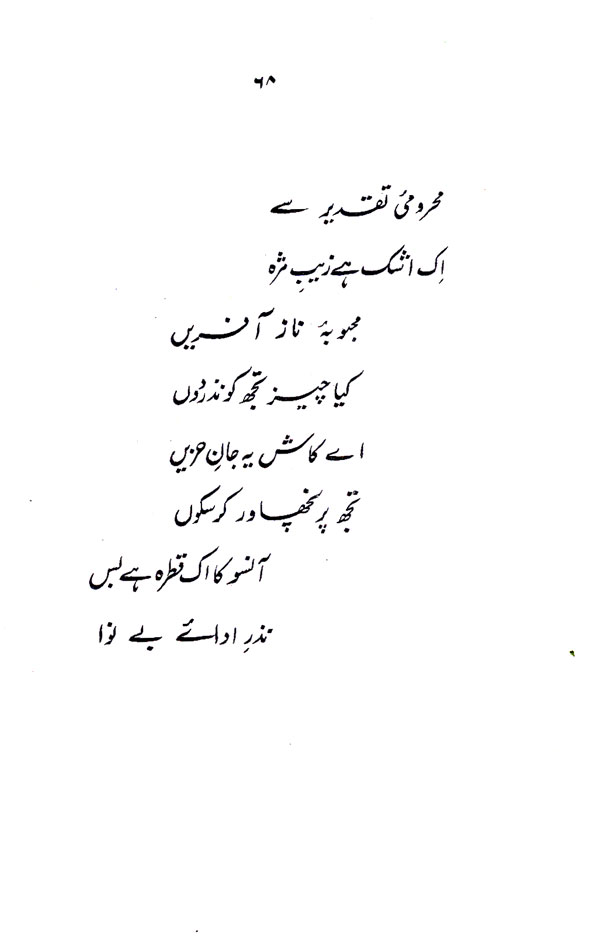 ۶۸
محرومیٔ تقدیر سے
اِک اشک ہے زیبِ مژہ
محبوبۂ ناز آفریں
کیا چیز تجھ کو نذر دُوں
اے کاش یہ جانِ حزیں
تجھ پر نچھاور کرسکوں
آنسو کا اک قطرہ ہے بس
نذرِ ادائے بے نوا